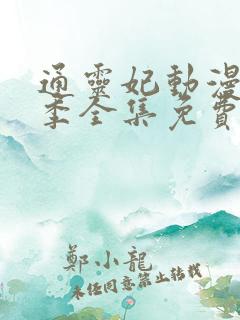 通靈妃動漫
季全集免費
鄭小龍
未经同意禁止转载